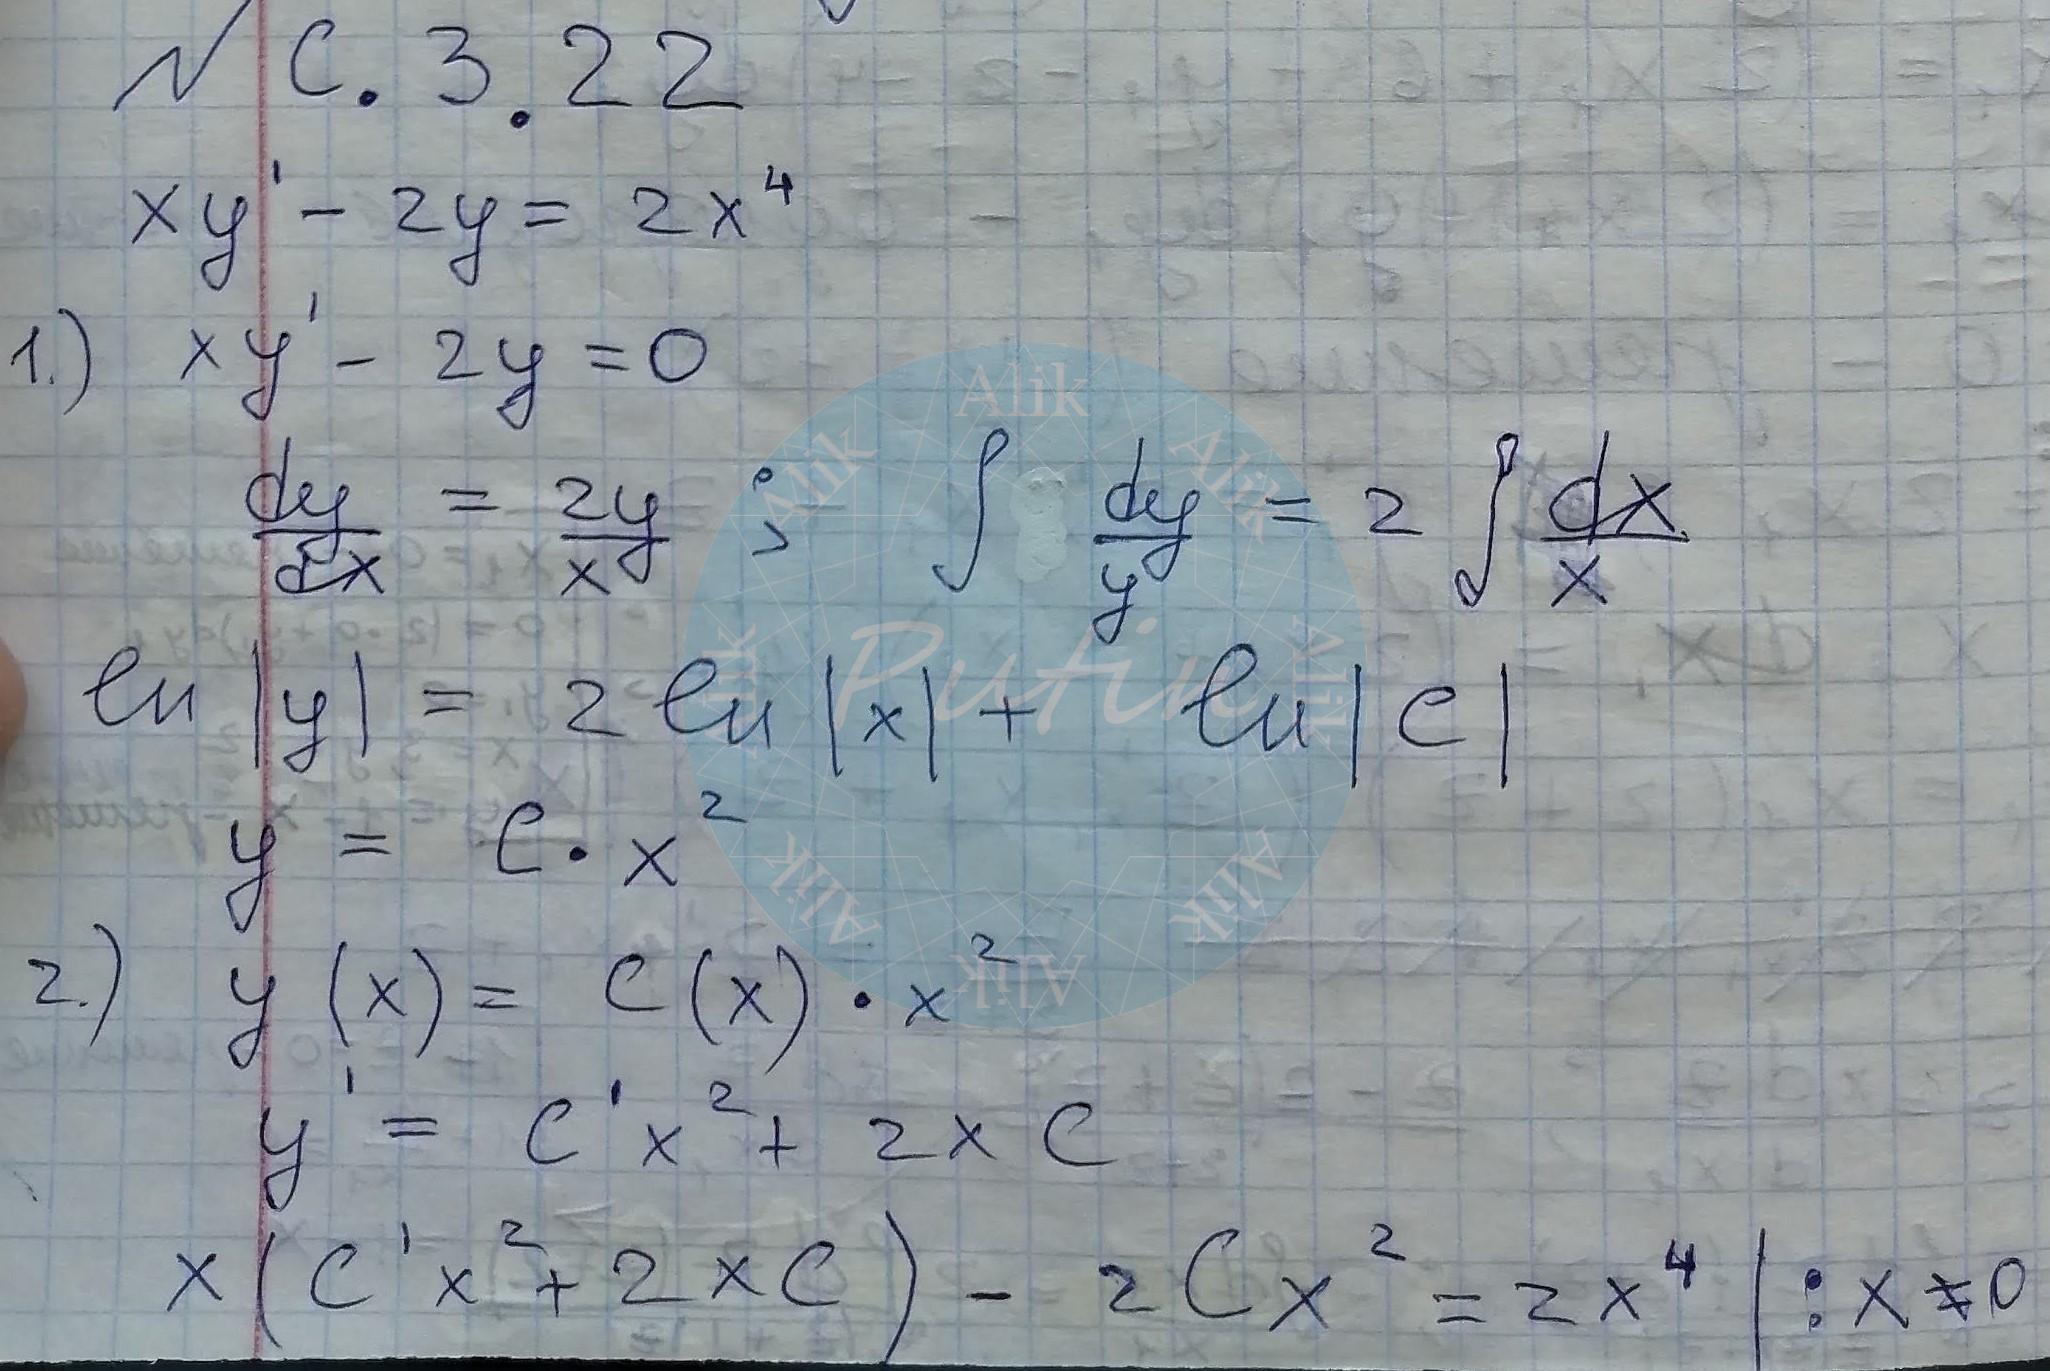 № С.3.22
xy' - 2y = 2x⁴
1.) xy' - 2y = 0
dy/dx = 2y/x ; ∫ dy/y = 2 ∫ dx/x
ln |y| = 2 ln |x| + ln |C|
y = C · x²
2.) y(x) = C(x) · x²
y' = C'x² + 2xC
x(C'x² + 2xC) - 2Cx² = 2x⁴ | : x ≠ 0
Alik
Alik
Alik
Alik
Alik
Alik
Alik
Alik
Putin